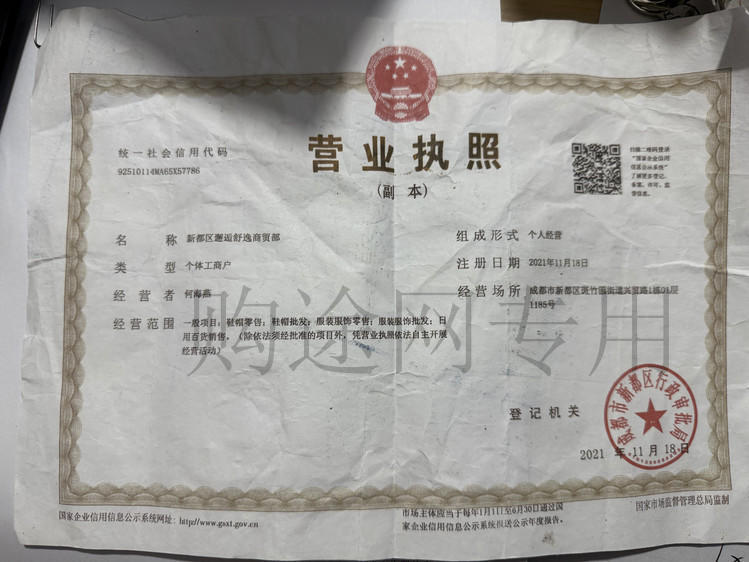 营业执照
(副 本)
统一社会信用代码
92510114MA65X57786
扫描二维码登录
“国家企业信用
信息公示系统”
了解更多登记、
备案、许可、监
管信息。
名 称 新都区邂逅舒逸商贸部
类 型 个体工商户
经 营 者 何海燕
经营范围 一般项目：鞋帽零售；鞋帽批发；服装服饰零售；服装服饰批发；日
用百货销售。（除依法须经批准的项目外，凭营业执照依法自主开展
经营活动）
组成形式 个人经营
注册日期 2021年11月18日
经营场所 成都市新都区斑竹园街道兴贸路1栋01层
1185号
购途网专用
登记机关
成都市新都区行政审批局
2021 年 11 月 18 日
国家企业信用信息公示系统网址：http://www.gsxt.gov.cn
市场主体应当于每年1月1日至6月30日通过国
家企业信用信息公示系统报送公示年度报告。
国家市场监督管理总局监制